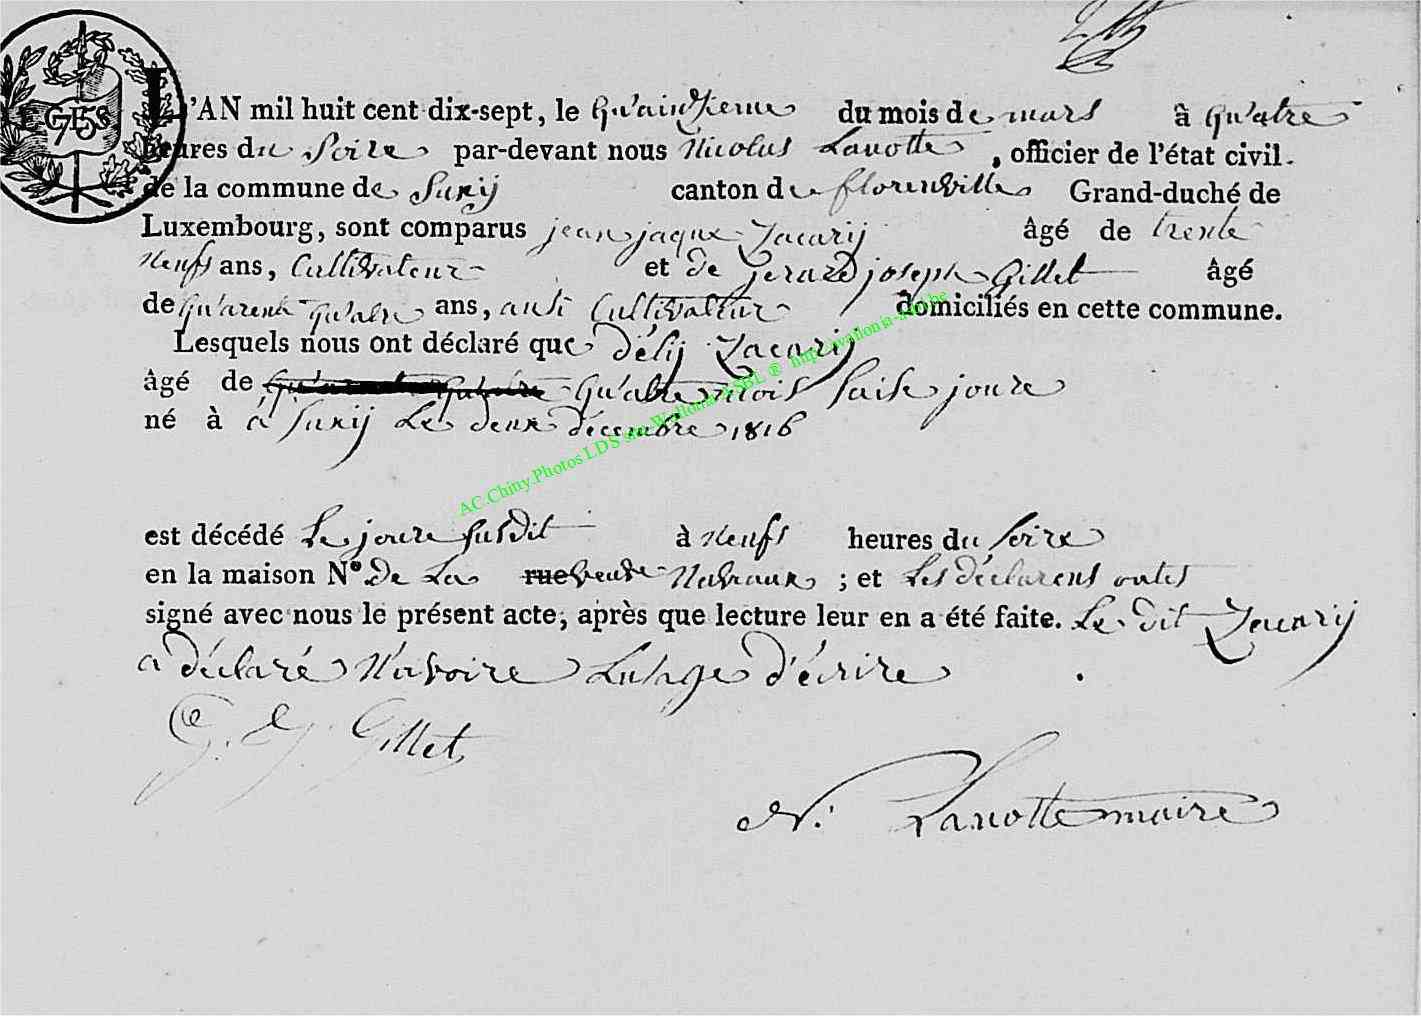 75 Cs
L'AN mil huit cent dix-sept, le qu'aindzieme du mois de mars à qu'atre
heures du soire par-devant nous Nicolas Lanotte, officier de l'état civil
de la commune de Suxij canton de florenville Grand-duché de
Luxembourg, sont comparus jean jaque Zacarij âgé de trente
neufs ans, Cultivateur et de jerard joseph Gillet âgé
de qu'arente qu'atre ans, ausi Cultivateur domiciliés en cette commune.
Lesquels nous ont déclaré que délij Zacarij
âgé de qu'atre mois saise joure
né à à Suxij Le deux décembre 1816
AC.Chiny.Photos LDS via Wallonia ASBL ® http:wallonia-asbl.be
est décédé Le joure susdit à neufs heures du soire
en la maison N.º de La rue veuve ; et Les déclarens ontes
signé avec nous le présent acte, après que lecture leur en a été faite. Le dit Zacarij
a déclaré n'avoire Lusage d'écrire
G. J. Gillet
N. Lanotte maire